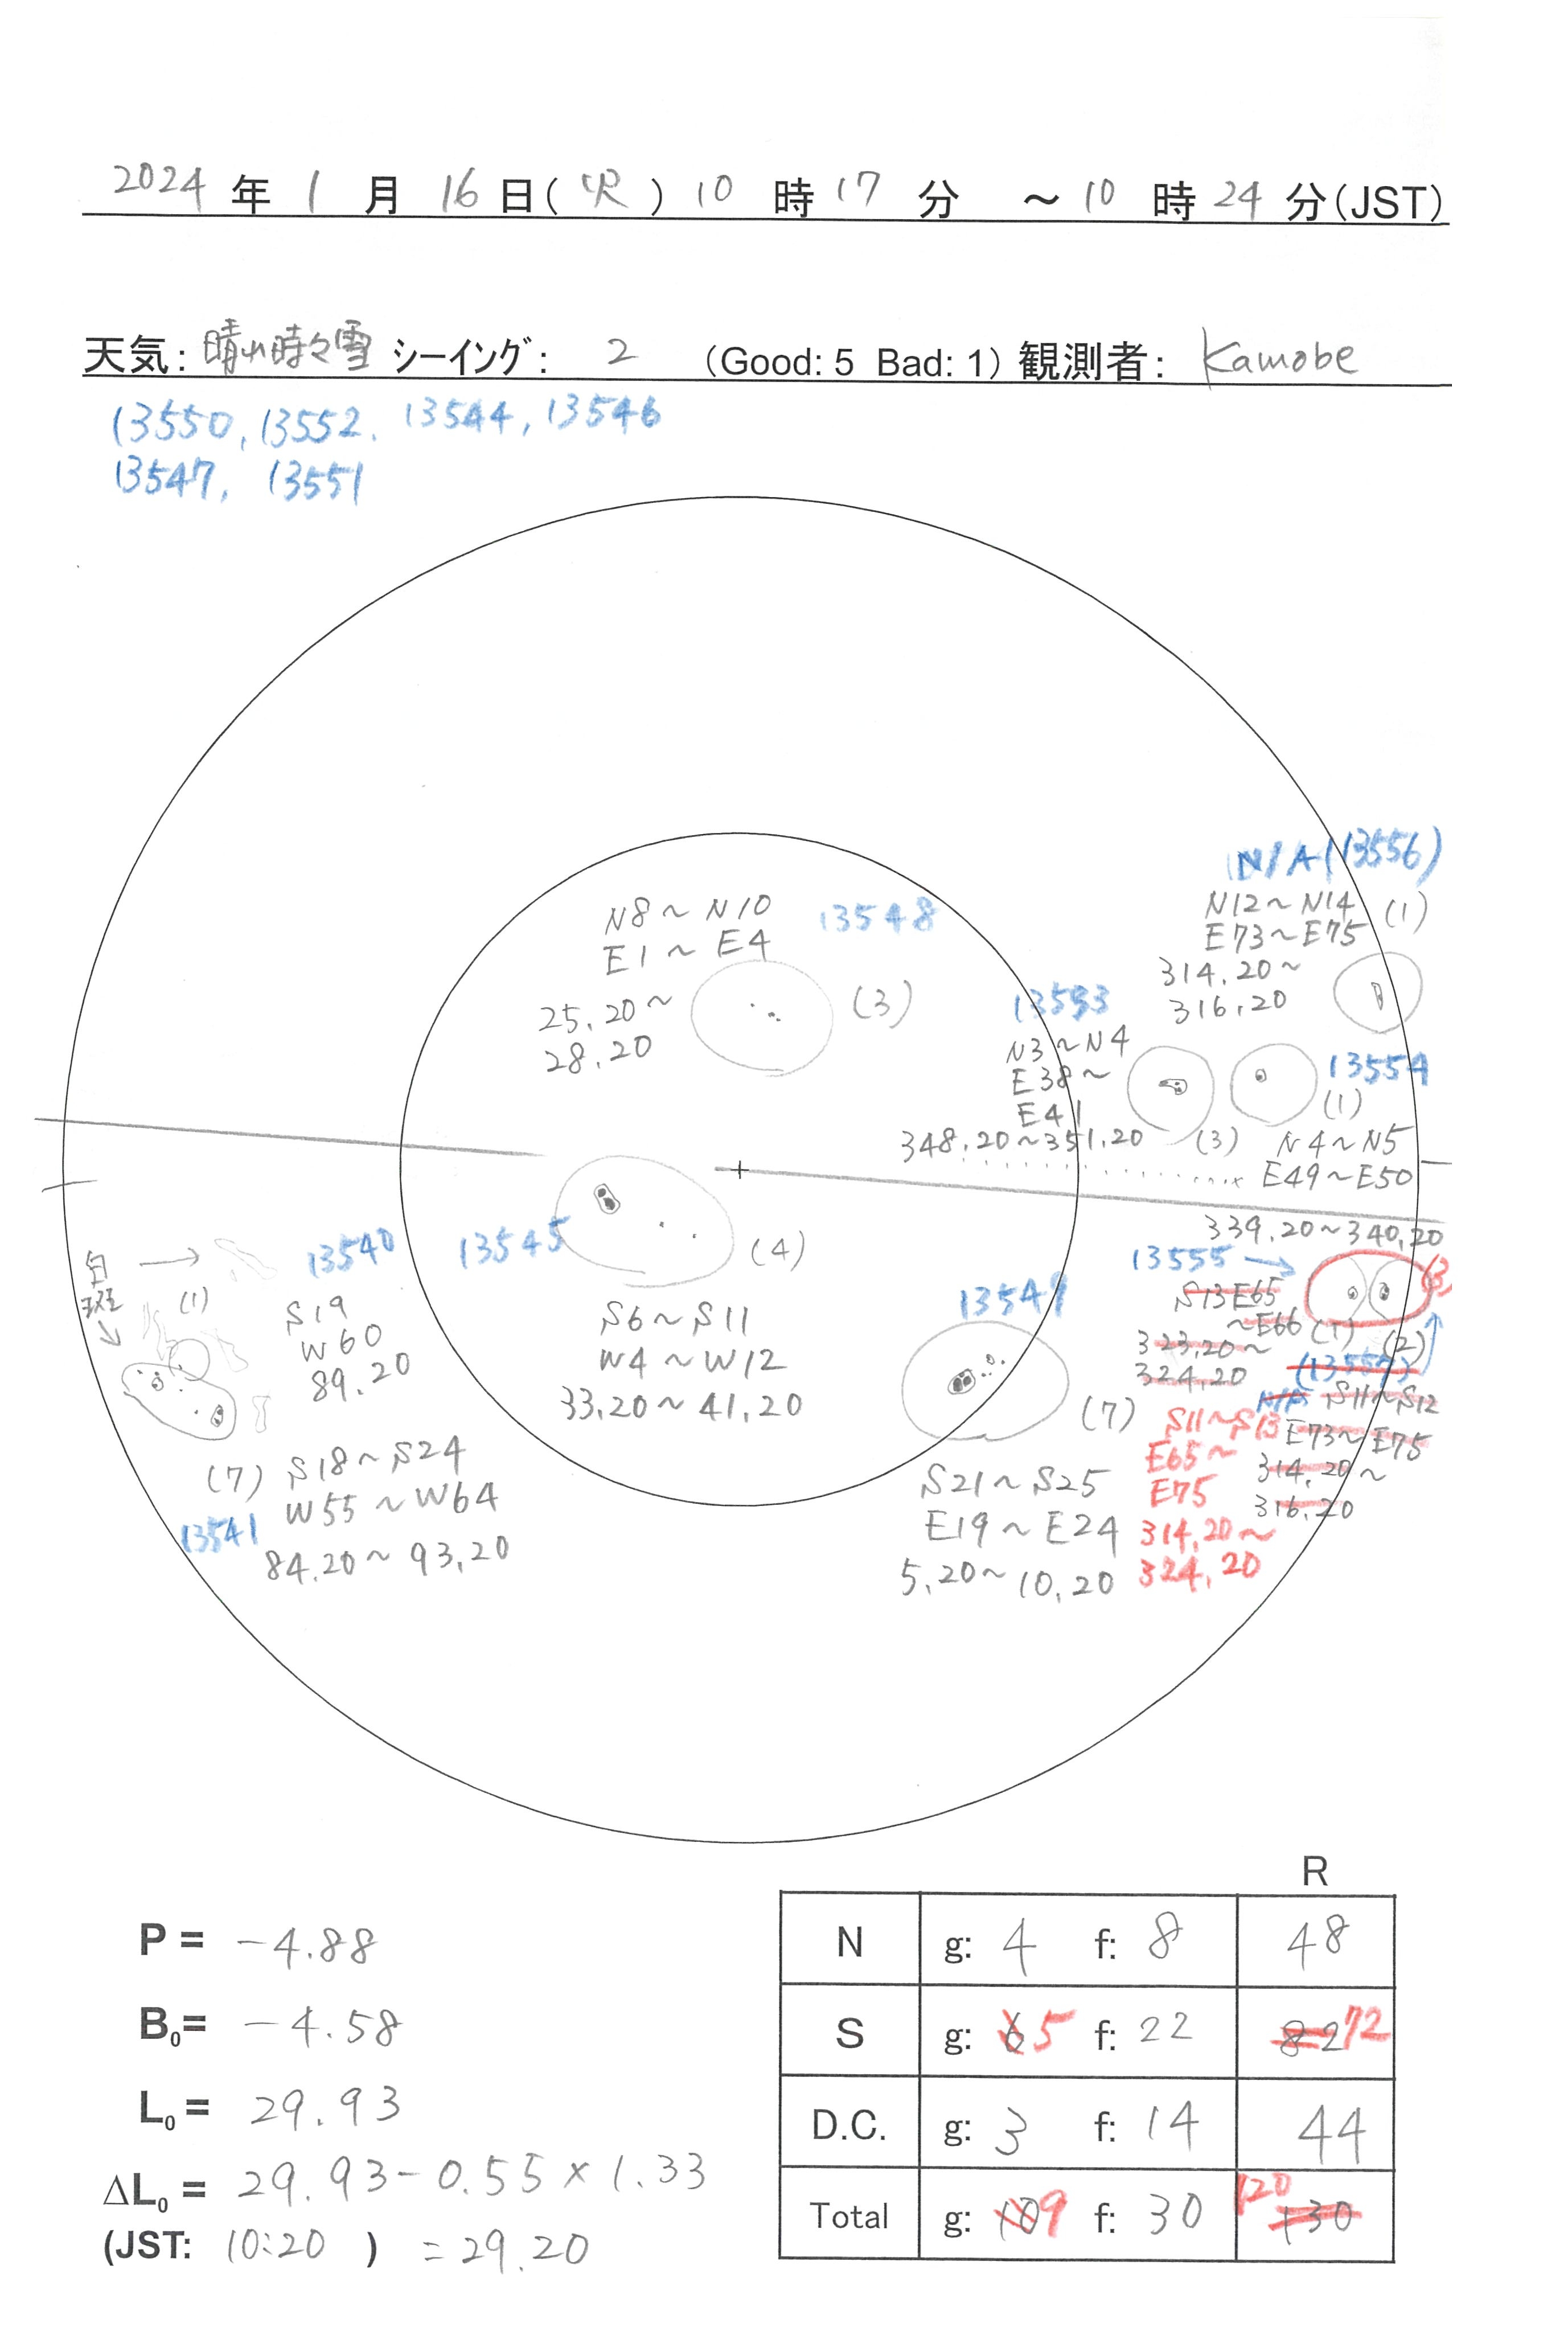 2024 年 1 月 16 日(火) 10 時 17 分 ～10 時 24 分(JST)
天気: 晴れ時々雪 シーイング: 2 (Good: 5 Bad: 1) 観測者: Kamobe
13550, 13552, 13544, 13546
13547, 13551
N/A(13556)
N12～N14 (1)
E73～E75
314.20～
316.20
N8～N10 13548
E1～E4
25.20～ (3)
28.20
13553
N3～N4
E38～
E41
348.20～351.20 (3)
13554
(1)
N4～N5
E49～E50
339.20～340.20
13545
(4)
S6～S11
W4～W12
33.20～41.20
白斑
(1) 13540
S19
W60
89.20
(7) S18～S24
W55～W64
13541
84.20～93.20
13549
(7)
S21～S25
E19～E24
5.20～10.20
13555 (3)
S13E65
～E66 (1) (2)
323.20～
324.20
N/A S11～S12
E73～E75
314.20～
316.20
S11～S13
E65～
E75
314.20～
324.20
P = -4.88
B0= -4.58
L0= 29.93
ΔL0= 29.93-0.55×1.33
(JST: 10:20 ) =29.20
R
N g: 4 f: 8 48
S g: 6 5 f: 22 82 72
D.C. g: 3 f: 14 44
Total g: 10 9 f: 30 130 120